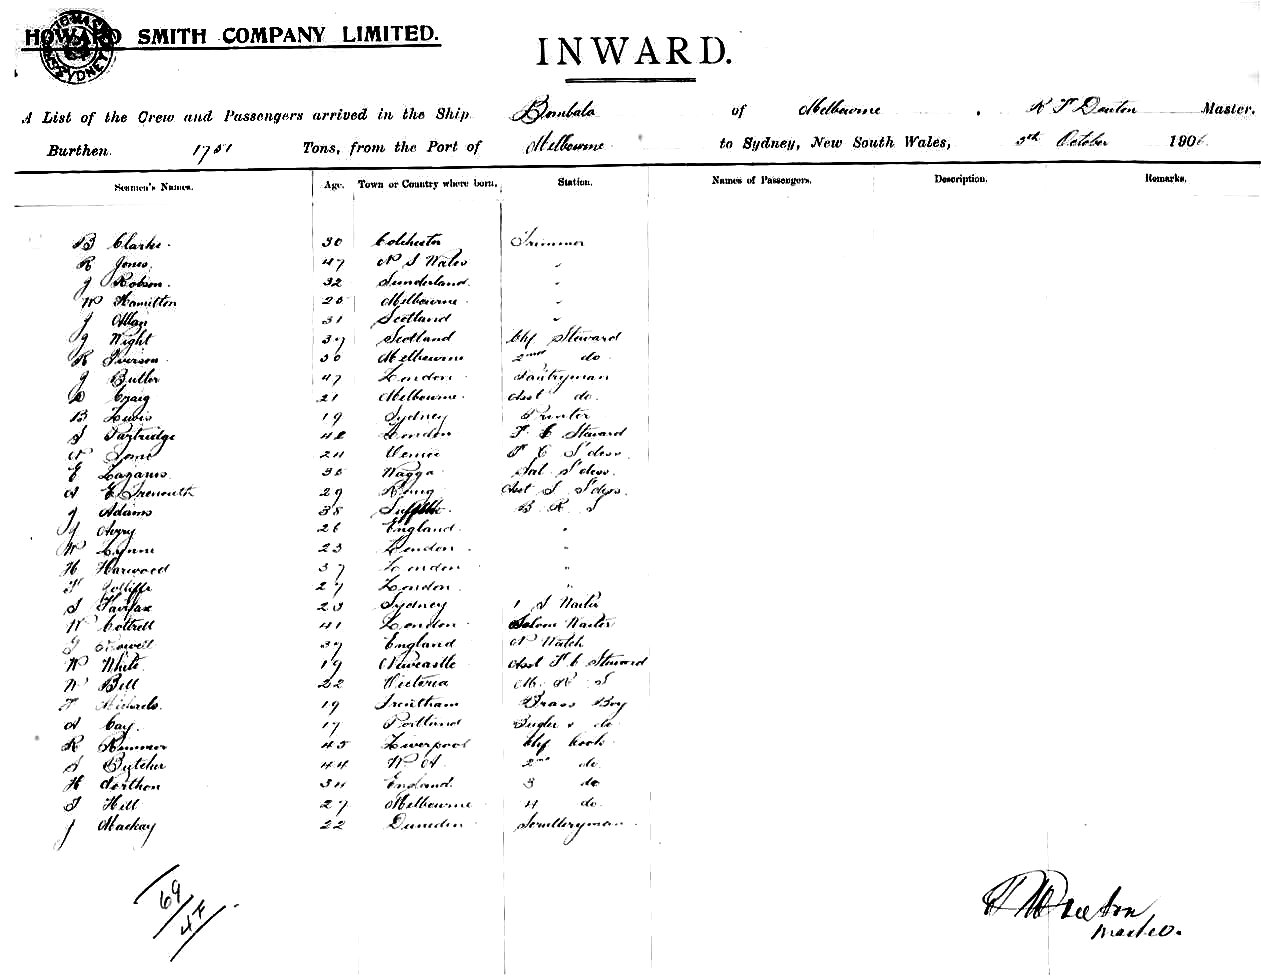 HOWARD SMITH COMPANY LIMITED.
INWARD.
A List of the Crew and Passengers arrived in the Ship Bombala of Melbourne . Master.
Burthen. Tons, from the Port of Melbourne to Sydney, New South Wales, October 190
Seamen's Names. Age. Town or Country where born. Station. Names of Passengers. Description. Remarks.
B Clarke. 30 Colchester Trimmer
R Jones 47 N S Wales "
J Robson. 32 Sunderland. "
W Hamilton Melbourne "
J Allan 31 Scotland "
J Wight 37 Scotland Chf Steward
R Iverson 30 Melbourne 2nd do
J Butler 47 London Pantryman
D Craig 21 Melbourne. Asst do.
B Lewis 19 Sydney Printer
S Partridge 42 London F C Steward
24 F C S'dess
E Lazarus 30 Wagga Sal S'dess.
A E Tremouth 29 Young Asst S S'dess.
J Adams 38 Suffolk B R S
J Avery 26 England "
W Lynne 23 London "
H Harwood 37 London "
F Jolliffe 27 London "
S Fairfax 23 Sydney 1 S Waiter
W Cottrell 41 London Saloon Waiter
37 England N Watch
W White 19 Newcastle Asst F C Steward
W Bell 22 Victoria M R S
F Michaels. 19 Trentham Brass Boy
A Cay. 17 Portland Bugler & do
R Rimmer 45 Liverpool Chf Cook
S Butcher 44 W A. 2nd do.
H Northon 34 England. 3 do
S Hill 27 Melbourne 4 do.
J Mackay 22 Dunedin Sculleryman
69/47
Master.